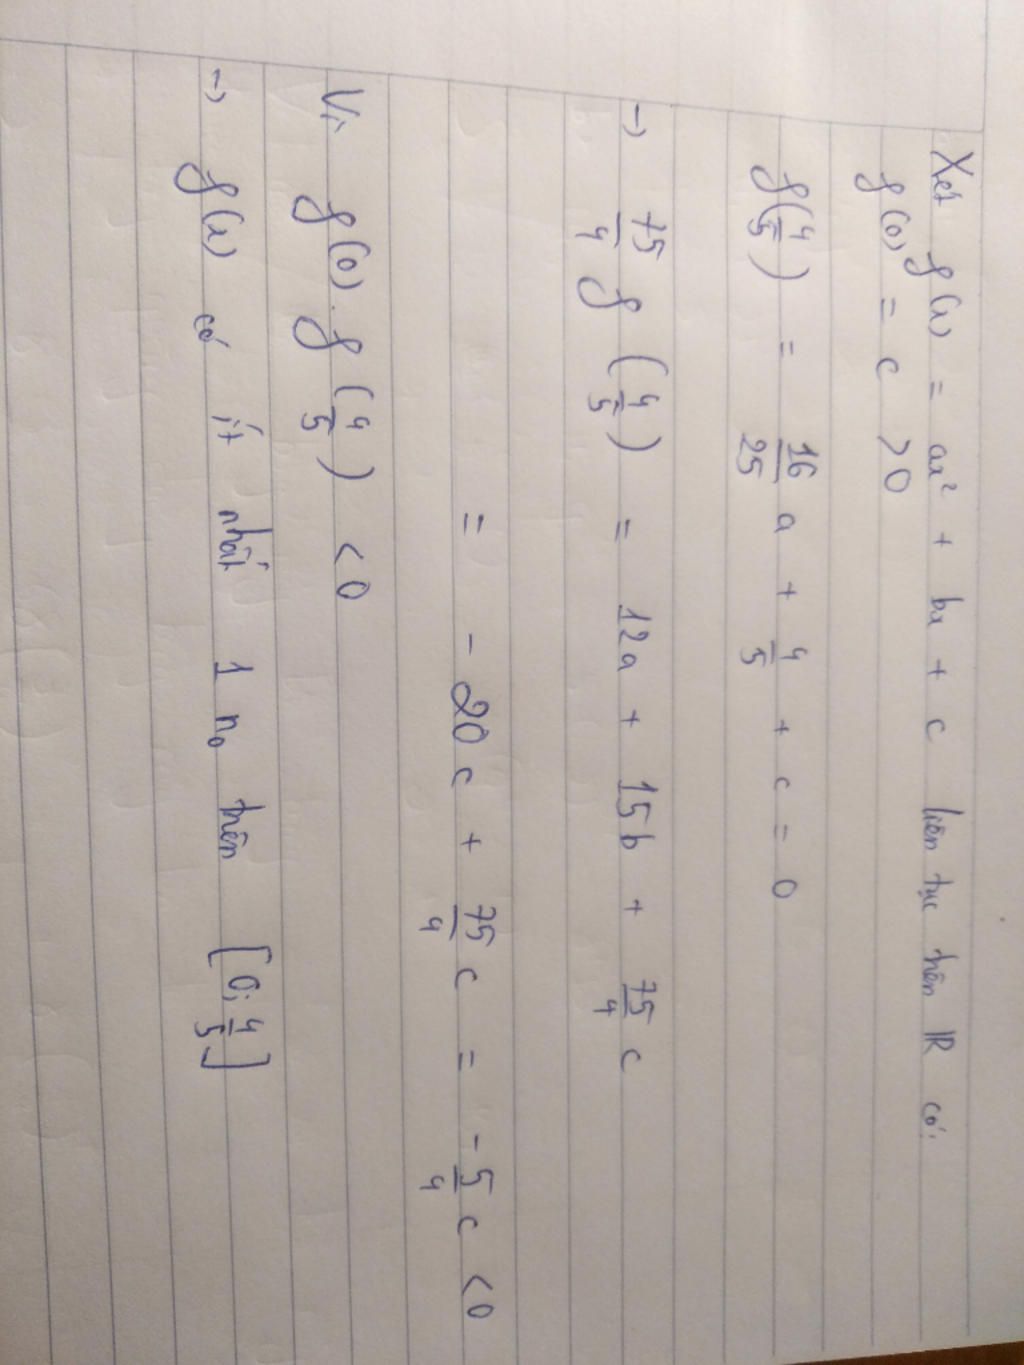 Xét f(x) = ax² + bx + c liên tục trên ℝ có:
f(0) = c > 0
f(4/5) = 16/25 a + 4/5 + c = 0
→ 75/4 f(4/5) = 12a + 15b + 75/4 c
= -20c + 75/4 c = -5/4 c < 0
Vì f(0).f(4/5) < 0
→ f(x) có ít nhất 1 n₀ trên [0; 4/5]